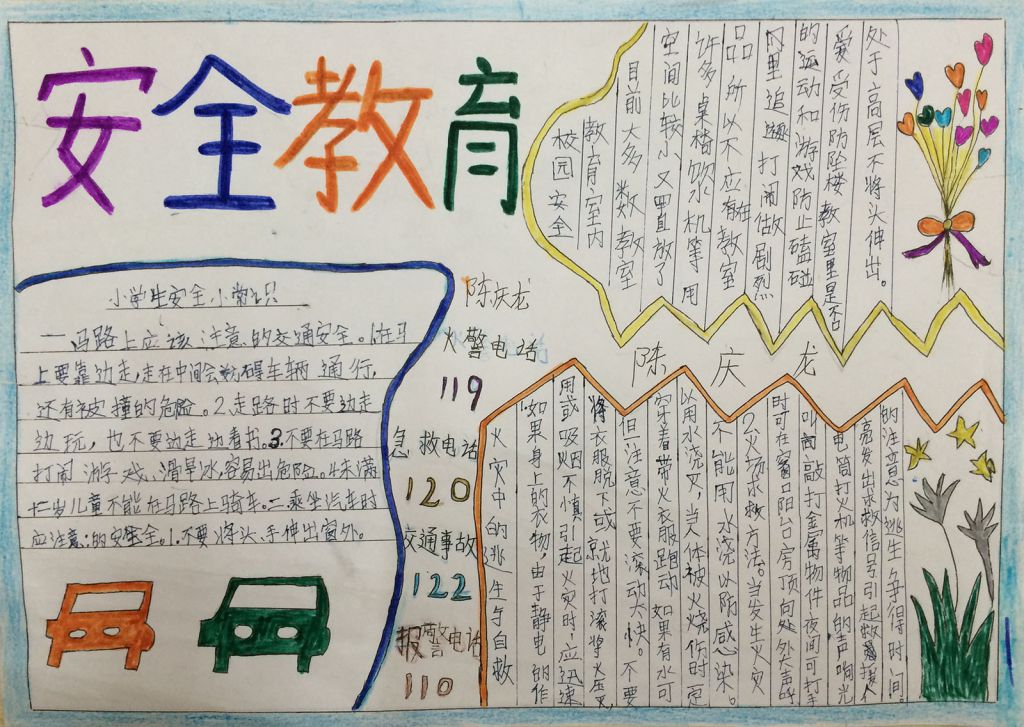 安全教育
小学生安全小常识
一马路上应该注意的交通安全。1.在马
上要靠边走,走在中间会妨碍车辆通行,
还有被撞的危险。2.走路时不要边走
边玩,也不要边走边看书。3.不要在马路
打闹游戏,滑旱冰,容易出危险。4.未满
十二岁儿童不能在马路上骑车。二乘坐汽车时
应注意:的安全。1.不要将头、手伸出窗外。
陈庆龙
火警电话
119
急救电话
120
交通事故
122
报警电话
110
校园安全
教育室内
目前大多数教室
空间比较小,又置放了
许多桌椅饮水机等用
品,所以不应在教室
里追打闹做剧烈
的运动和游戏防止磕碰
爱受伤防坠楼教室里是否
处于高层不将头伸出。
陈庆龙
火灾中的逃生与自救
如果身上的衣物,由于静电的作
用或吸烟不慎引起火灾时,应迅速
将衣服脱下或就地打滚将火压灭
但注意不要滚动太快。不要
穿着带火衣服跑动如果有水可
以用水浇灭,当人体被火烧伤时定
不能用水浇以防感染。
2.火场求救方法。当发生火灾
时可在窗口阳台房顶向处大声呼
叫敲打金属物件夜间可打手
电筒打火机等物品的声响光
亮发出求救信号引起救援人
的注意为逃生争得时间。